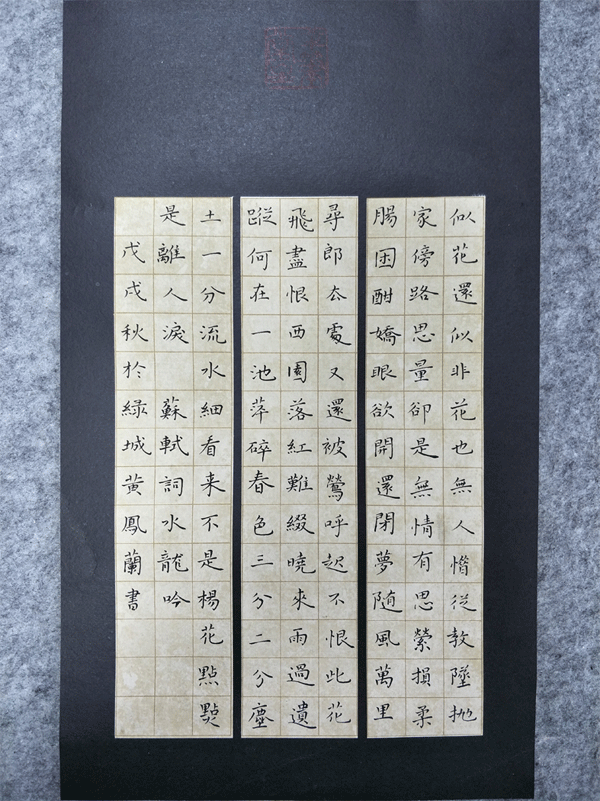 似花還似非花也無人惜從教墜抛
家傍路思量卻是無情有思縈損柔
腸困酣嬌眼欲開還閉夢随風萬里
尋郎去處又還被鶯呼起不恨此花
飛盡恨西園落紅難綴曉來雨過遺
蹤何在一池萍碎春色三分二分塵
土一分流水細看来不是楊花點點
是離人淚 蘇軾詞水龍吟
戊戌秋於綠城黃鳳蘭書